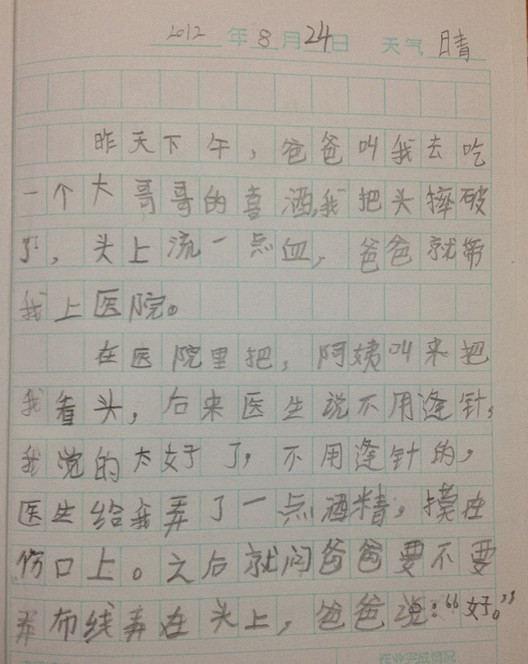 2012 年 8 月 24 日 天气 晴
昨天下午，爸爸叫我去吃
一个大哥哥的喜酒，我把头摔破
了，头上流一点血，爸爸就带
我上医院。
在医院里把，阿姨叫来把
我看头，后来医生说不用逢针，
我觉的太好了，不用逢针的，
医生给我弄了一点酒精，摸在
伤口上。之后就问爸爸要不要
弄布线弄在头上，爸爸说：“好。”